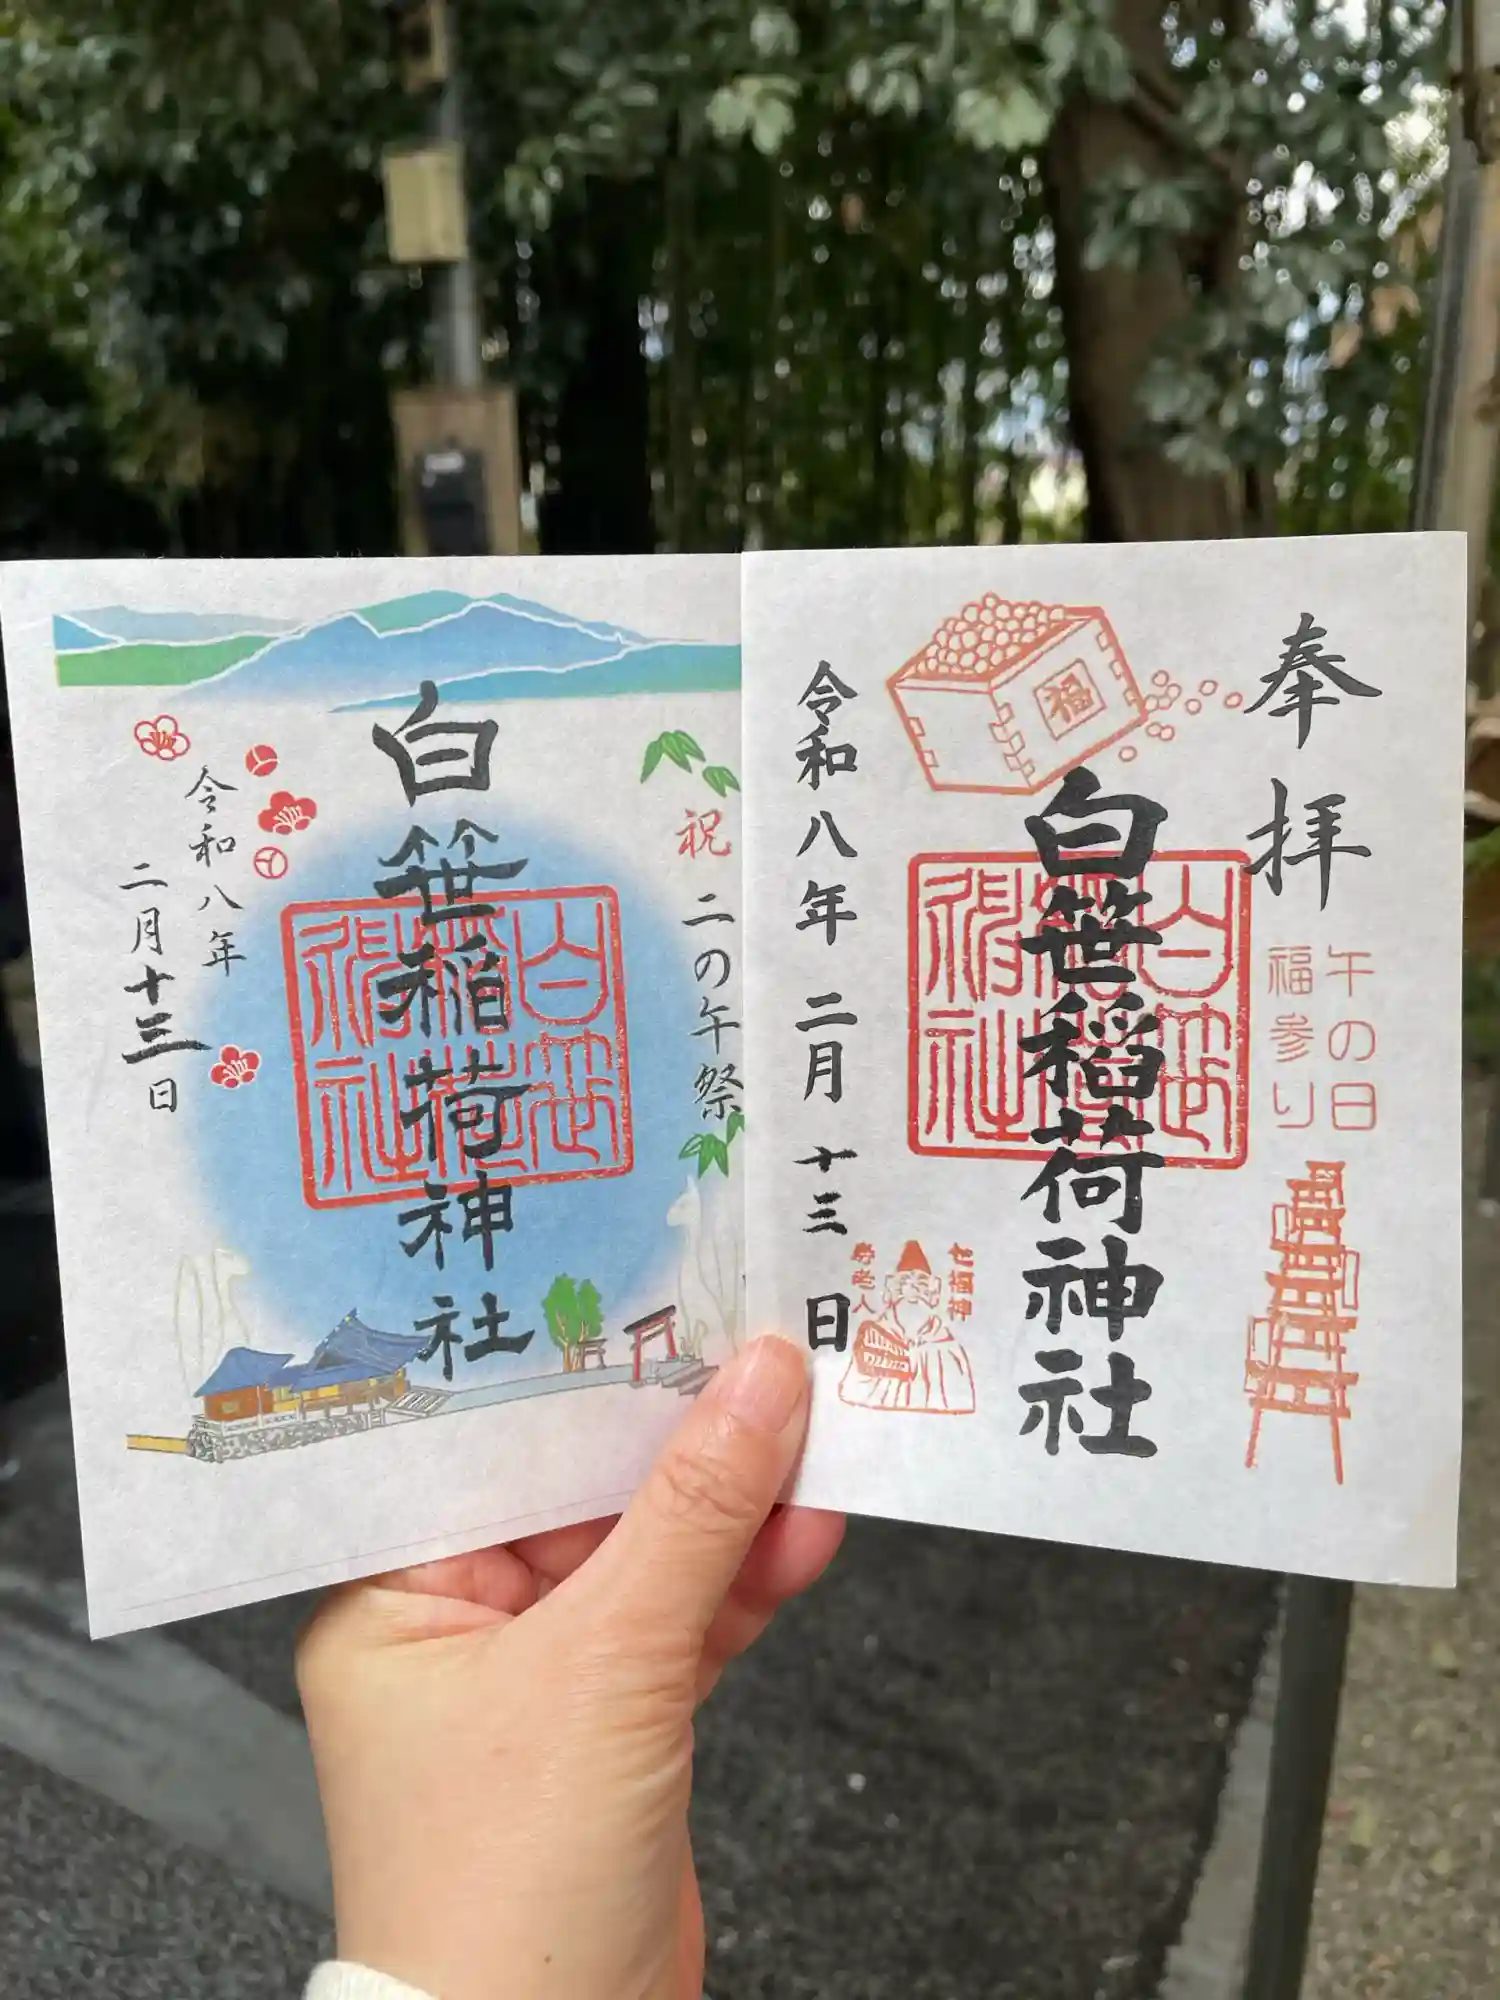 奉拝
午の日
福参り
福
白笹稲荷神社
白笹稲荷神社
七福神
寿老人
令和八年 二月 十三 日
祝 二の午祭
白笹稲荷神社
白笹稲荷神社
令和八年
二月十三日